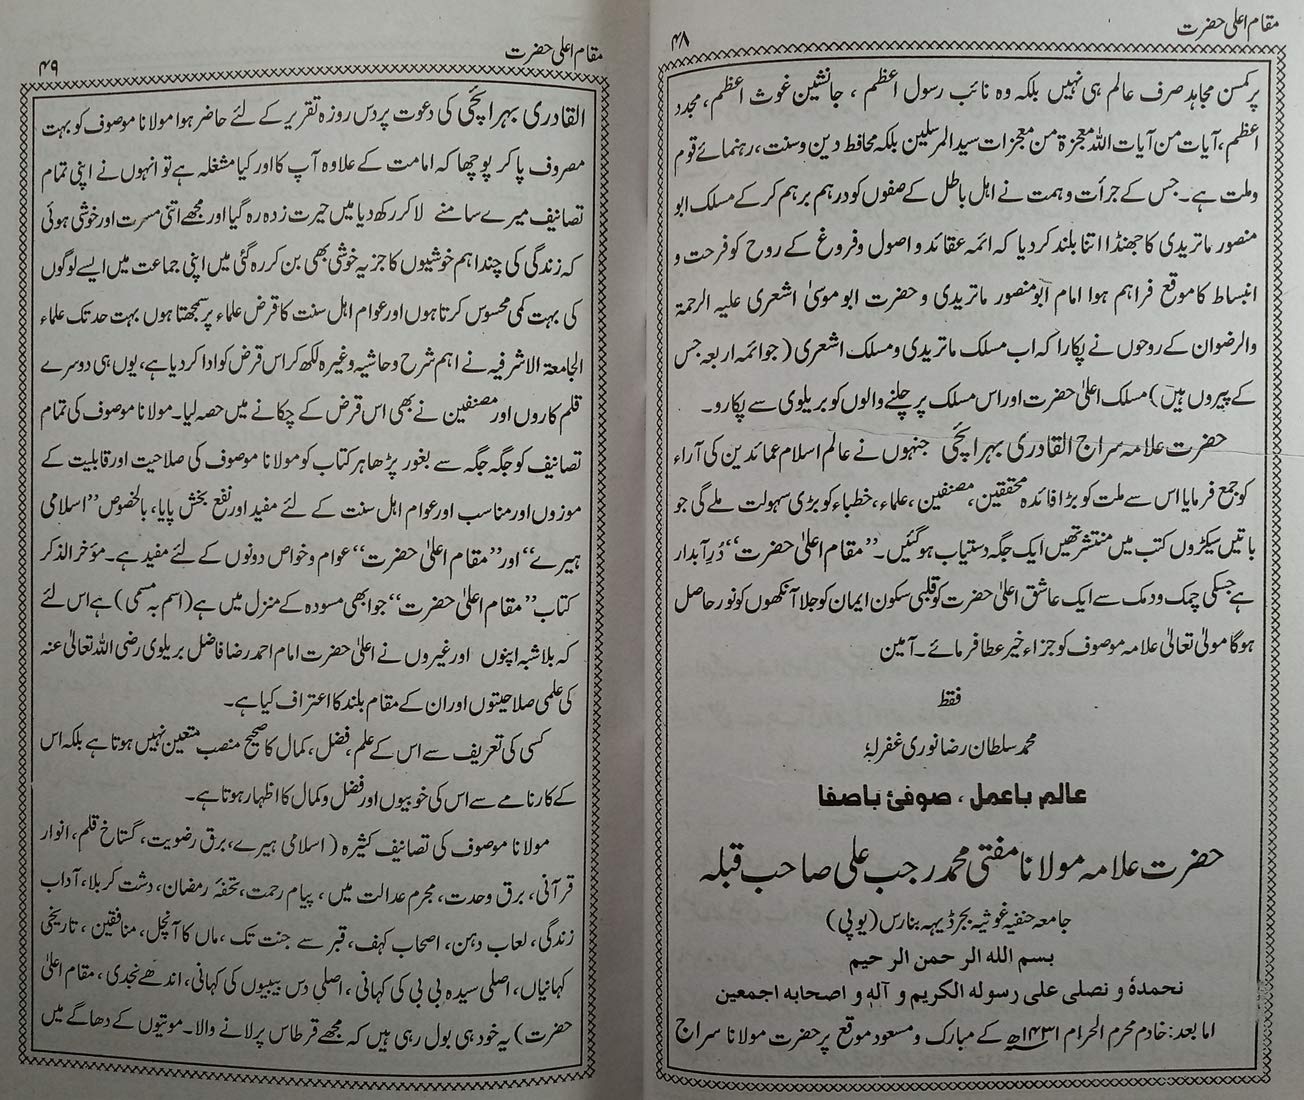 مقام اعلیٰ حضرت
۴۸
پر کمسن مجاہد صرف عالم ہی نہیں بلکہ وہ نائب رسول اعظم ، جانشین غوث اعظم، مجدد
اعظم، آیات من آیات اللہ معجزۃ من معجزات سید المرسلین بلکہ محافظ دین و سنت، رہنمائے قوم
وملت ہے۔ جس کے جرأت و ہمت نے اہل باطل کے صفوں کو درہم برہم کر کے مسلک ابو
منصور ماتریدی کا جھنڈا اتنا بلند کر دیا کہ ائمہ عقائد و اصول و فروغ کے روح کو فرحت و
انبساط کا موقع فراہم ہوا امام ابو منصور ماتریدی و حضرت ابو موسیٰ اشعری علیہ الرحمۃ
والرضوان کے روحوں نے پکارا کہ اب مسلک ماتریدی و مسلک اشعری (جو ائمہ اربعہ جس
کے پیروں ہیں) مسلک اعلیٰ حضرت اور اس مسلک پر چلنے والوں کو بریلوی سے پکارو۔
حضرت علامہ سراج القادری بہرائچی جنہوں نے عالم اسلام عمائدین کی آراء
کو جمع فرمایا اس سے ملت کو بڑا فائدہ محققین، مصنفین، علماء، خطباء کو بڑی سہولت ملے گی جو
باتیں سیکڑوں کتب میں منتشر تھیں ایک جگہ دستیاب ہو گئیں۔ ”مقام اعلیٰ حضرت“ دُرِ آبدار
ہے جسکی چمک ودمک سے ایک عاشق اعلیٰ حضرت کو قلبی سکون ایمان کو جلا آنکھوں کو نور حاصل
ہوگا مولیٰ تعالیٰ علامہ موصوف کو جزاء خیر عطا فرمائے۔ آمین
فقط
محمد سلطان رضا نوری غفرلہٗ
عالم باعمل ، صوفئ باصفا
حضرت علامہ مولانا مفتی محمد رجب علی صاحب قبلہ
جامعہ حنفیہ غوثیہ بجرڈیہہ بنارس (یوپی)
بسم اللہ الرحمن الرحیم
نحمدہٗ و نصلی علی رسولہ الکریم و آلہٖ و اصحابہ اجمعین
اما بعد: خادم محرم الحرام ۱۴۳۱ھ کے مبارک و مسعود موقع پر حضرت مولانا سراج
مقام اعلیٰ حضرت
۴۹
القادری بہرائچی کی دعوت پر دس روزہ تقریر کے لئے حاضر ہوا مولانا موصوف کو بہت
مصروف پا کر پوچھا کہ امامت کے علاوہ آپ کا اور کیا مشغلہ ہے تو انہوں نے اپنی تمام
تصانیف میرے سامنے لا کر رکھ دیا میں حیرت زدہ رہ گیا اور مجھے اتنی مسرت اور خوشی ہوئی
کہ زندگی کی چند اہم خوشیوں کا جز یہ خوشی بھی بن کر رہ گئی میں اپنی جماعت میں ایسے لوگوں
کی بہت کمی محسوس کرتا ہوں اور عوام اہل سنت کا قرض علماء پر سمجھتا ہوں بہت حد تک علماء
الجامعۃ الاشرفیہ نے اہم شرح و حاشیہ وغیرہ لکھ کر اس قرض کو ادا کر دیا ہے، یوں ہی دوسرے
قلم کاروں اور مصنفین نے بھی اس قرض کے چکانے میں حصہ لیا۔ مولانا موصوف کی تمام
تصانیف کو جگہ جگہ سے بغور پڑھا ہر کتاب کو مولانا موصوف کی صلاحیت اور قابلیت کے
موزوں اور مناسب اور عوام اہل سنت کے لئے مفید اور نفع بخش پایا، بالخصوص ”اسلامی
ہیرے“ اور ”مقام اعلیٰ حضرت“ عوام و خواص دونوں کے لئے مفید ہے۔ مؤخر الذکر
کتاب ”مقام اعلیٰ حضرت“ جو ابھی مسودہ کے منزل میں ہے (اسم بہ مسمی) ہے اس لئے
کہ بلاشبہ اپنوں اور غیروں نے اعلیٰ حضرت امام احمد رضا فاضل بریلوی رضی اللہ تعالیٰ عنہ
کی علمی صلاحیتوں اور ان کے مقام بلند کا اعتراف کیا ہے۔
کسی کی تعریف سے اس کے علم، فضل، کمال کا صحیح منصب متعین نہیں ہوتا ہے بلکہ اس
کے کارنامے سے اس کی خوبیوں اور فضل و کمال کا اظہار ہوتا ہے۔
مولانا موصوف کی تصانیف کثیرہ (اسلامی ہیرے، برق رضویت، گستاخ قلم، انوار
قرآنی، برق وحدت، مجرم عدالت میں، پیام رحمت، تحفۂ رمضان، دشت کربلا، آداب
زندگی، لعاب دہن، اصحاب کہف، قبر سے جنت تک، ماں کا آنچل، منافقین، تاریخی
کہانیاں، اصلی سیدہ بی بی کی کہانی، اصلی دس بیبیوں کی کہانی، اندھے نجدی، مقام اعلیٰ
حضرت) یہ خود ہی بول رہی ہیں کہ مجھے قرطاس پر لانے والا۔ موتیوں کے دھاگے میں